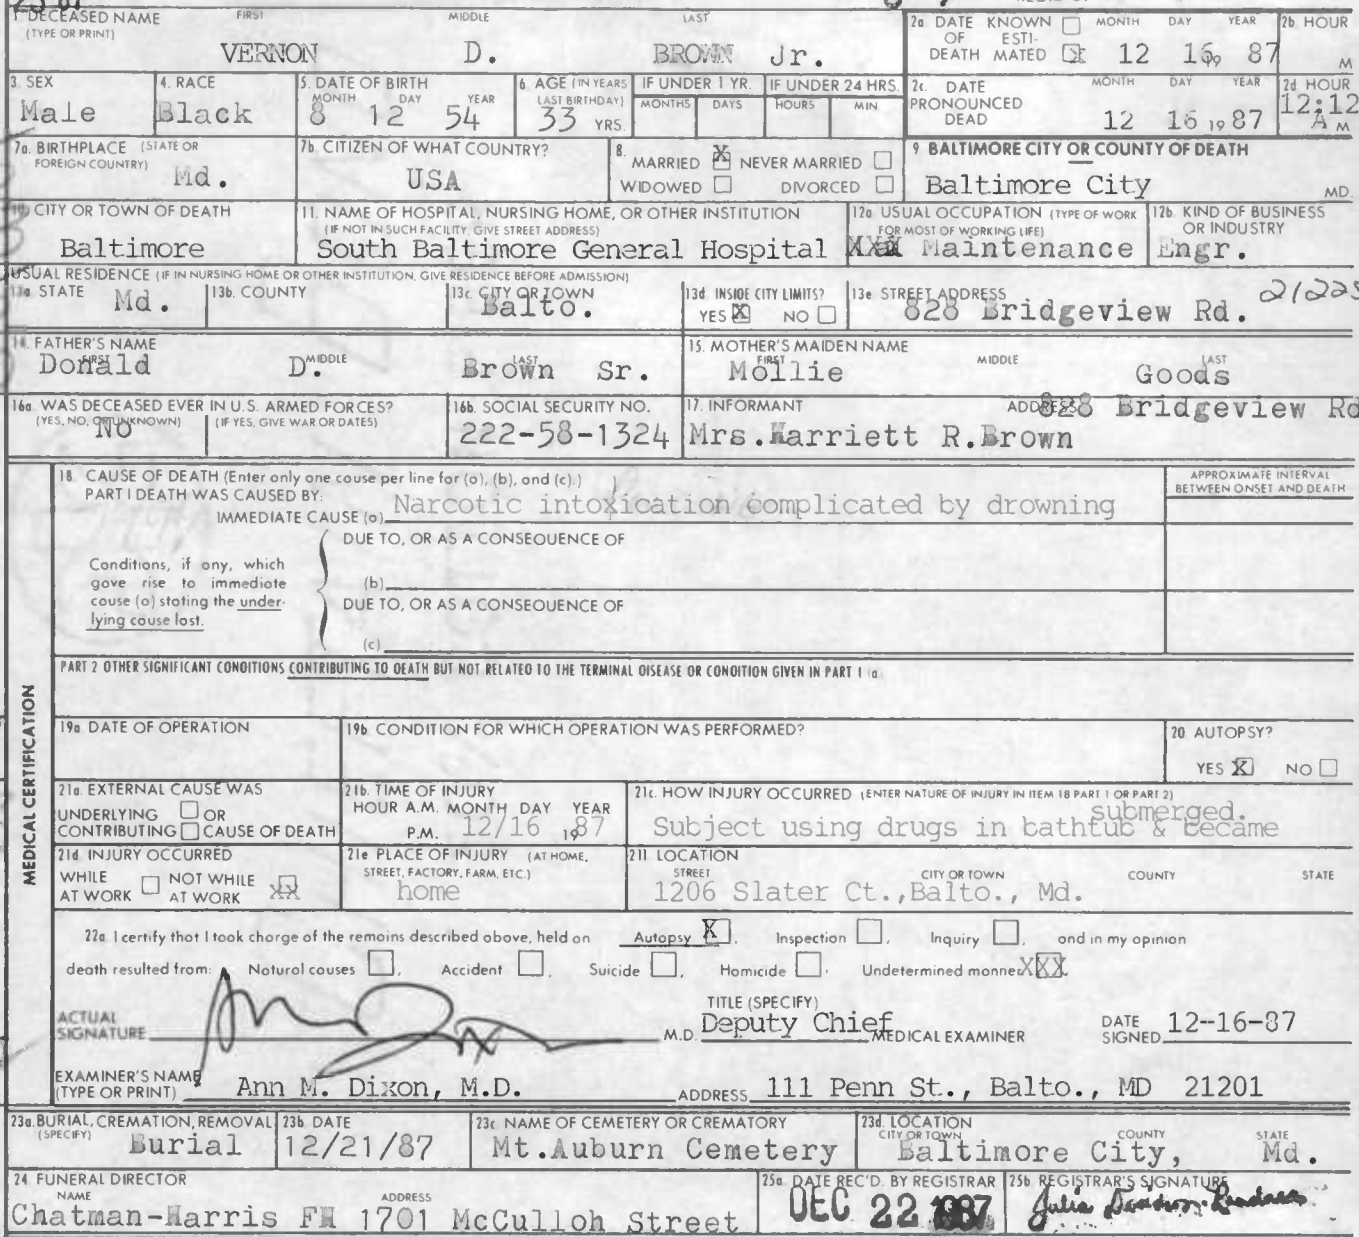 1 DECEASED NAME FIRST MIDDLE LAST
(TYPE OR PRINT)
VERNON D. BROWN Jr.
2a DATE KNOWN ☐ MONTH DAY YEAR 2b HOUR
OF ESTI-
DEATH MATED ☒ 12 16, 87 M
3. SEX 4. RACE 5. DATE OF BIRTH 6. AGE (IN YEARS IF UNDER 1 YR. IF UNDER 24 HRS.
MONTH DAY YEAR LAST BIRTHDAY) MONTHS DAYS HOURS MIN
Male Black 8 12 54 33 YRS.
2c. DATE MONTH DAY YEAR 2d HOUR
PRONOUNCED 12:12
DEAD 12 16 1987 A M
7a. BIRTHPLACE (STATE OR FOREIGN COUNTRY)
Md.
7b. CITIZEN OF WHAT COUNTRY?
USA
8. MARRIED ☒ NEVER MARRIED ☐
WIDOWED ☐ DIVORCED ☐
9 BALTIMORE CITY OR COUNTY OF DEATH
Baltimore City MD.
10. CITY OR TOWN OF DEATH
Baltimore
11. NAME OF HOSPITAL, NURSING HOME, OR OTHER INSTITUTION
(IF NOT IN SUCH FACILITY, GIVE STREET ADDRESS)
South Baltimore General Hospital
12a USUAL OCCUPATION (TYPE OF WORK
FOR MOST OF WORKING LIFE)
Maintenance
12b. KIND OF BUSINESS
OR INDUSTRY
Engr.
USUAL RESIDENCE (IF IN NURSING HOME OR OTHER INSTITUTION, GIVE RESIDENCE BEFORE ADMISSION)
13a STATE Md.
13b. COUNTY
13c. CITY OR TOWN
Balto.
13d. INSIDE CITY LIMITS?
YES ☒ NO ☐
13e STREET ADDRESS 21225
828 Bridgeview Rd.
14. FATHER'S NAME
FIRST MIDDLE LAST
Donald D. Brown Sr.
15. MOTHER'S MAIDEN NAME
FIRST MIDDLE LAST
Mollie Goods
16a WAS DECEASED EVER IN U.S. ARMED FORCES?
(YES, NO, OR UNKNOWN) (IF YES, GIVE WAR OR DATES)
No
16b. SOCIAL SECURITY NO.
222-58-1324
17. INFORMANT ADDRESS 828 Bridgeview Rd
Mrs.Harriett R.Brown
MEDICAL CERTIFICATION
18 CAUSE OF DEATH (Enter only one couse per line for (a), (b), and (c).)
PART I DEATH WAS CAUSED BY:
IMMEDIATE CAUSE (a) Narcotic intoxication complicated by drowning
APPROXIMATE INTERVAL
BETWEEN ONSET AND DEATH
DUE TO, OR AS A CONSEQUENCE OF
Conditions, if any, which
gove rise to immediate
couse (o) stoting the under-
lying couse lost.
(b)
DUE TO, OR AS A CONSEQUENCE OF
(c)
PART 2 OTHER SIGNIFICANT CONDITIONS CONTRIBUTING TO DEATH BUT NOT RELATED TO THE TERMINAL DISEASE OR CONDITION GIVEN IN PART I (a)
19a DATE OF OPERATION
19b CONDITION FOR WHICH OPERATION WAS PERFORMED?
20. AUTOPSY?
YES ☒ NO ☐
21a. EXTERNAL CAUSE WAS
UNDERLYING ☐ OR
CONTRIBUTING ☐ CAUSE OF DEATH
21b. TIME OF INJURY
HOUR A.M. MONTH DAY YEAR
P.M. 12/16 1987
21c. HOW INJURY OCCURRED (ENTER NATURE OF INJURY IN ITEM 18 PART 1 OR PART 2)
submerged.
Subject using drugs in bathtub & became
21d INJURY OCCURRED
WHILE NOT WHILE
AT WORK ☐ AT WORK XX
21e PLACE OF INJURY (AT HOME,
STREET, FACTORY, FARM, ETC.)
home
21f. LOCATION
STREET CITY OR TOWN COUNTY STATE
1206 Slater Ct.,Balto., Md.
22a I certify that I took charge of the remains described above, held on Autopsy ☒, Inspection ☐, Inquiry ☐, and in my opinion
death resulted from: Natural couses ☐, Accident ☐, Suicide ☐, Homicide ☐, Undetermined monner XXX
TITLE (SPECIFY)
ACTUAL
SIGNATURE M.D. Deputy Chief MEDICAL EXAMINER DATE SIGNED 12-16-87
EXAMINER'S NAME
(TYPE OR PRINT) Ann M. Dixon, M.D. ADDRESS 111 Penn St., Balto., MD 21201
23a. BURIAL, CREMATION, REMOVAL
(SPECIFY) Burial
23b. DATE
12/21/87
23c. NAME OF CEMETERY OR CREMATORY
Mt.Auburn Cemetery
23d. LOCATION
CITY OR TOWN COUNTY STATE
Baltimore City, Md.
24 FUNERAL DIRECTOR
NAME ADDRESS
Chatman-Harris FH 1701 McCulloh Street
25a. DATE REC'D. BY REGISTRAR
DEC 22 1987
25b. REGISTRAR'S SIGNATURE